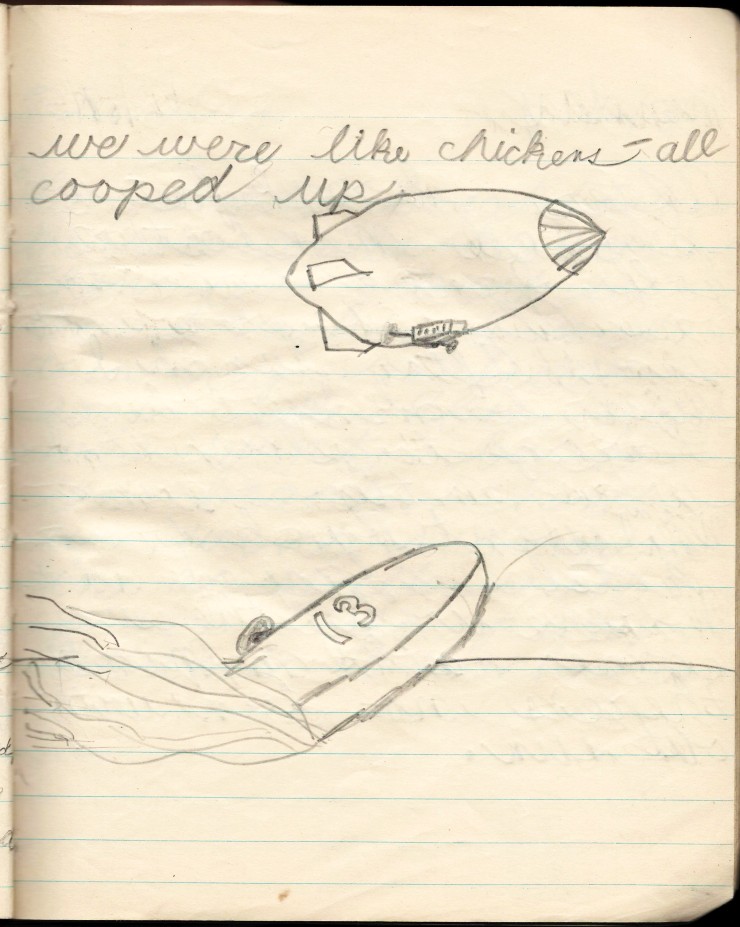 we were like chickens – all
cooped up
13